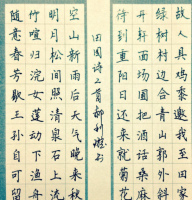 故人具鸡黍邀我至田家
绿树村边合青山郭外斜
开轩面场圃把酒话桑麻
待到重阳日还来就菊花
田园诗二首
空山新雨后天气晚来秋
明月松间照清泉石上流
竹喧归浣女莲动下渔舟
随意春芳歇王孙自可留